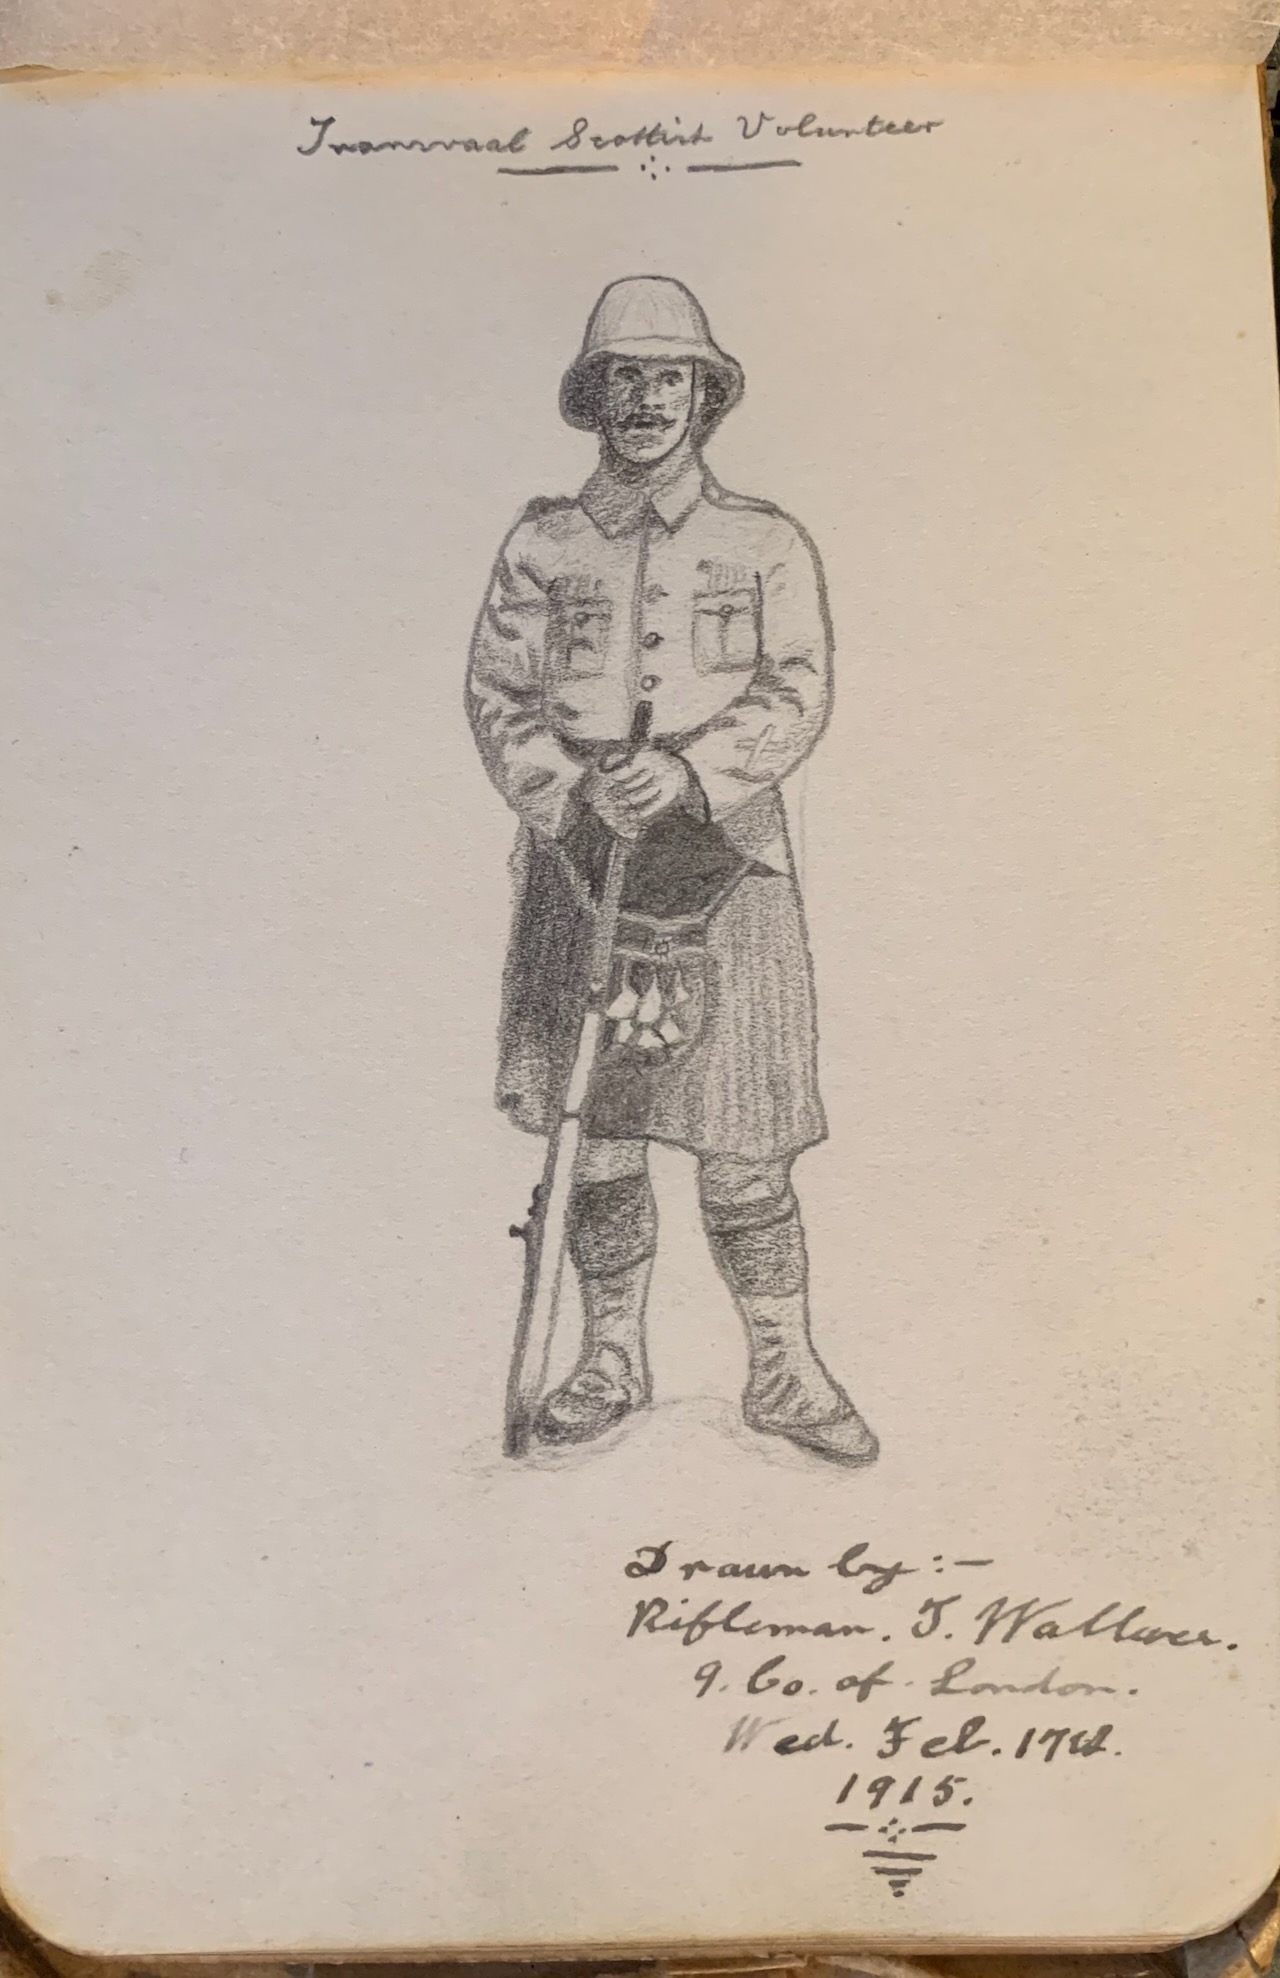 Transvaal Scottish Volunteer
Drawn by :-
Rifleman. T. Wallace.
9. Co. of London.
Wed. Feb. 17th.
1915.